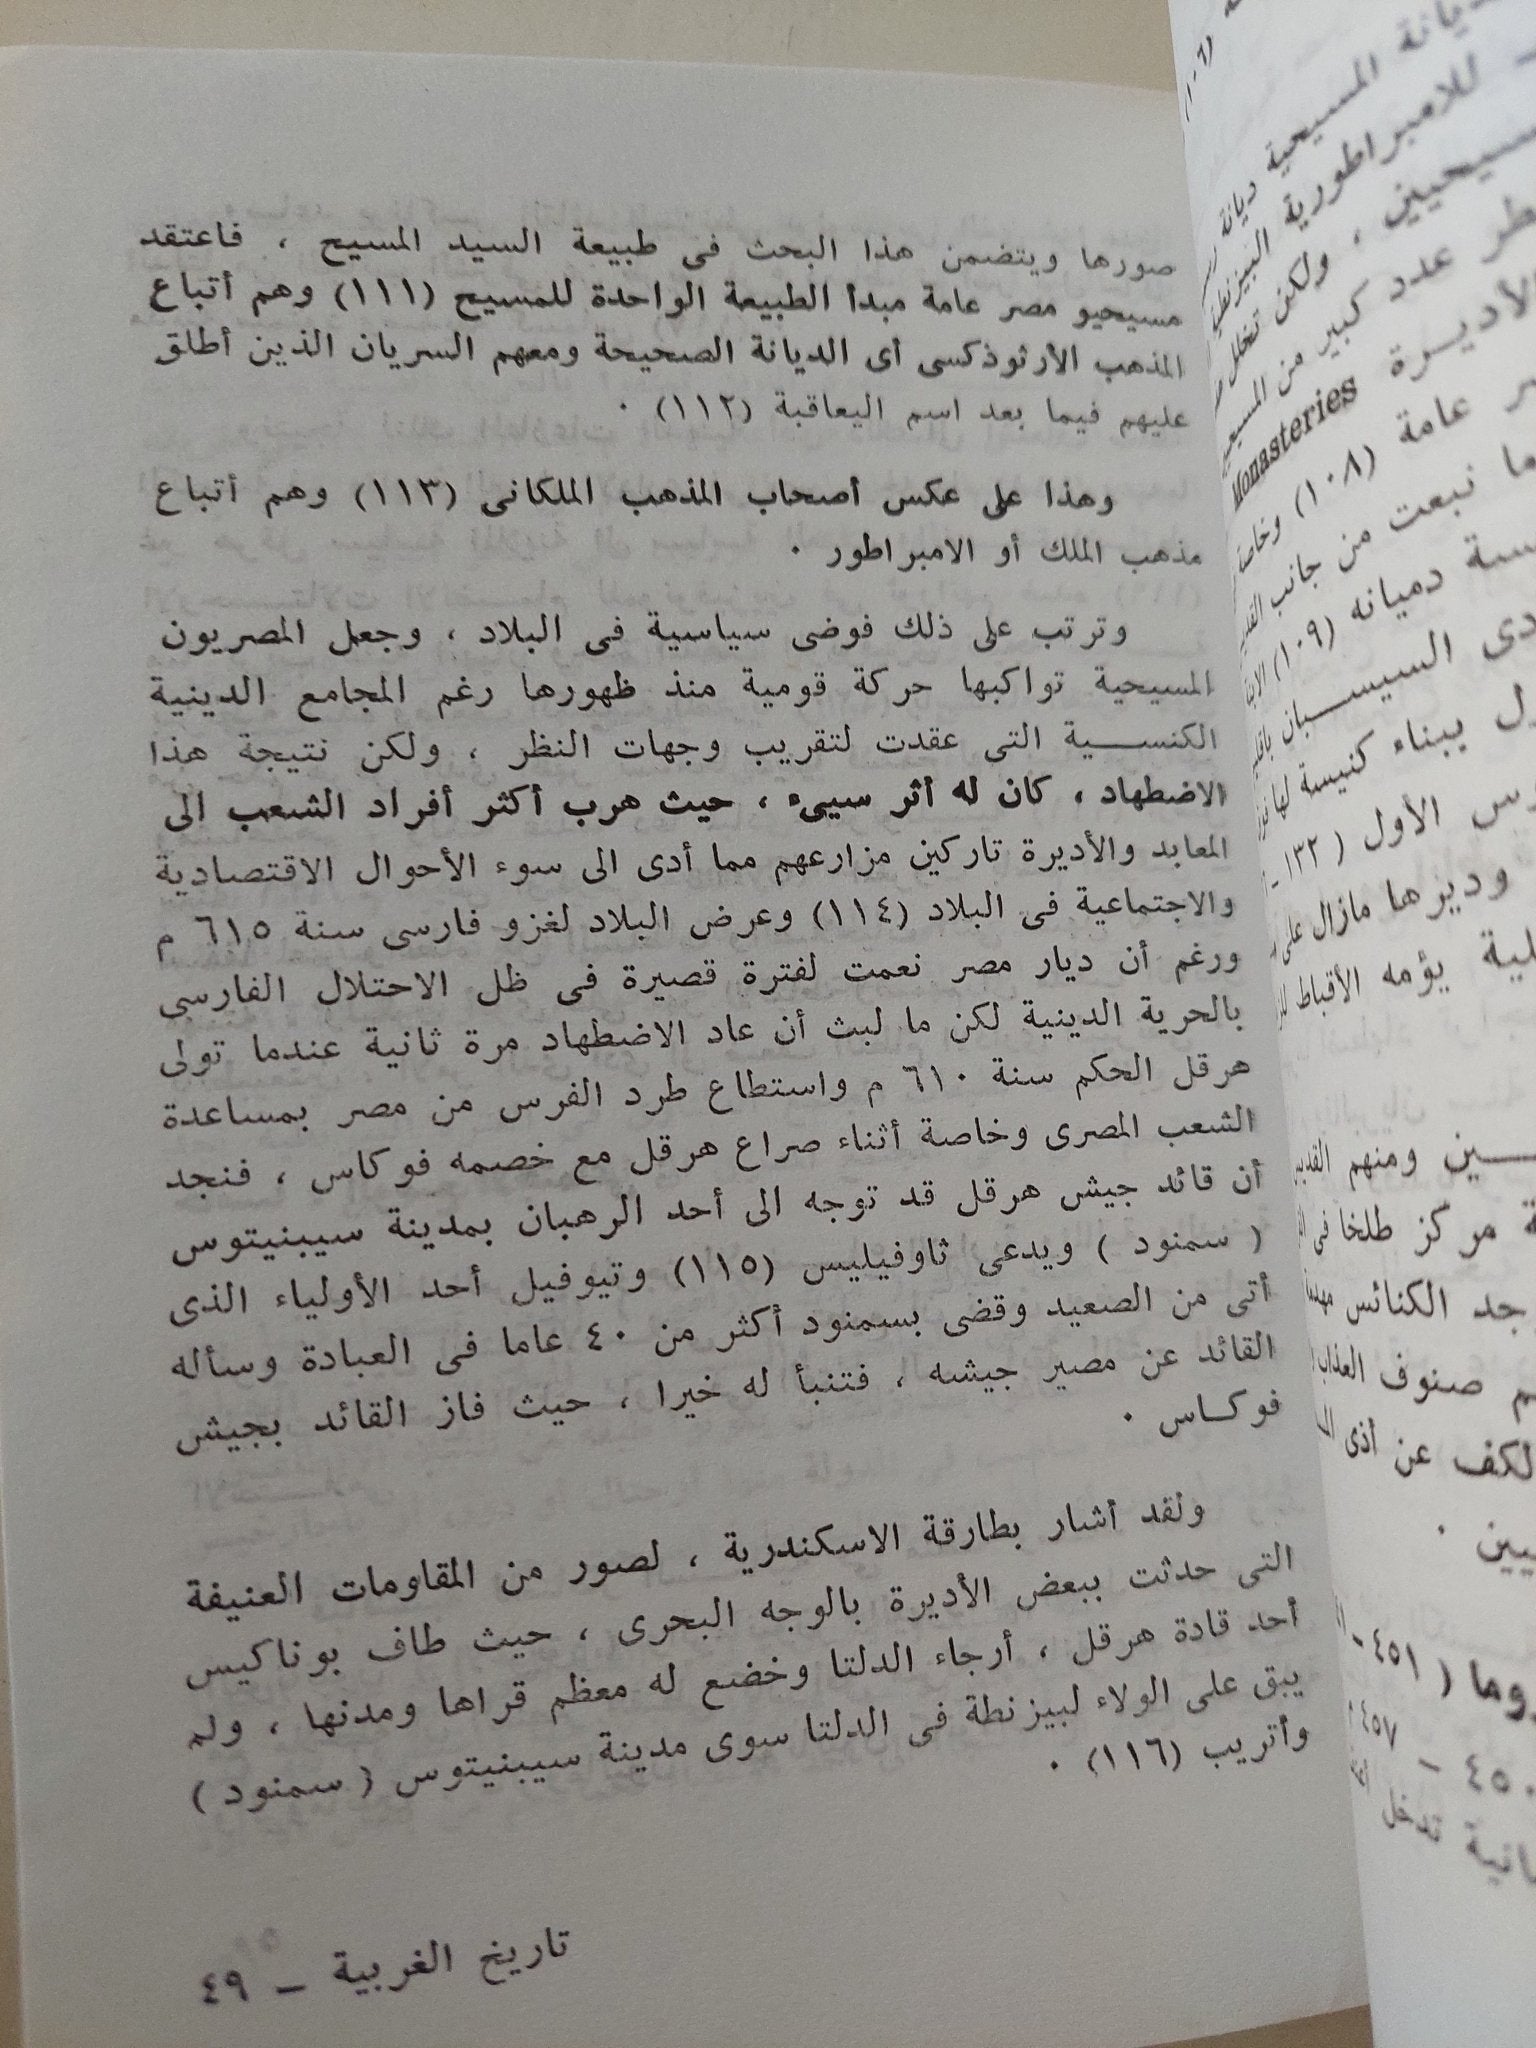 صورها ويتضمن هذا البحث فى طبيعة السيد المسيح ، فاعتقد
مسيحيو مصر عامة مبدأ الطبيعة الواحدة للمسيح (١١١) وهم أتباع
المذهب الأرثوذكسى أى الديانة الصحيحة ومعهم السريان الذين أطلق
عليهم فيما بعد اسم اليعاقبة (١١٢) ٠
وهذا على عكس أصحاب المذهب الملكانى (١١٣) وهم أتباع
مذهب الملك أو الامبراطور ٠
وترتب على ذلك فوضى سياسية فى البلاد ، وجعل المصريون
المسيحية تواكبها حركة قومية منذ ظهورها رغم المجامع الدينية
الكنسية التى عقدت لتقريب وجهات النظر ، ولكن نتيجة هذا
الاضطهاد ، كان له أثر سيىء ، حيث هرب أكثر أفراد الشعب الى
المعابد والأديرة تاركين مزارعهم مما أدى الى سوء الأحوال الاقتصادية
والاجتماعية فى البلاد (١١٤) وعرض البلاد لغزو فارسى سنة ٦١٥ م
ورغم أن ديار مصر نعمت لفترة قصيرة فى ظل الاحتلال الفارسى
بالحرية الدينية لكن ما لبث أن عاد الاضطهاد مرة ثانية عندما تولى
هرقل الحكم سنة ٦١٠ م واستطاع طرد الفرس من مصر بمساعدة
الشعب المصرى وخاصة أثناء صراع هرقل مع خصمه فوكاس ، فنجد
أن قائد جيش هرقل قد توجه الى أحد الرهبان بمدينة سيبنيتوس
( سمنود ) ويدعى ثاوفيليس (١١٥) وتيوفيل أحد الأولياء الذى
أتى من الصعيد وقضى بسمنود أكثر من ٤٠ عاما فى العبادة وسأله
القائد عن مصير جيشه ، فتنبأ له خيرا ، حيث فاز القائد بجيش
فوكاس ٠
ولقد أشار بطارقة الاسكندرية ، لصور من المقاومات العنيفة
التى حدثت ببعض الأديرة بالوجه البحرى ، حيث طاف بوناكيس
أحد قادة هرقل ، أرجاء الدلتا وخضع له معظم قراها ومدنها ، ولم
يبق على الولاء لبيزنطة فى الدلتا سوى مدينة سيبنيتوس ( سمنود )
وأتريب (١١٦) ٠
تاريخ الغربية – ٤٩
ديانة المسيحية ديانة
للامبراطورية البيزنطية
ولكن تخلل
عدد كبير من
الأديرة Monasteries
عامة (١٠٨) وخاصة
نبعت من جانب
دميانه (١٠٩)
السيسبان
ببناء كنيسة لها
الأول ( ١٣٢ –
وديرها مازال على
يؤمه الأقباط
ومنهم
مركز طلخا فى
الكنائس
صنوف العذاب
الكف عن أذى
( ٤٥١ –
٤٥٠ – ٤٥٧
تدخل